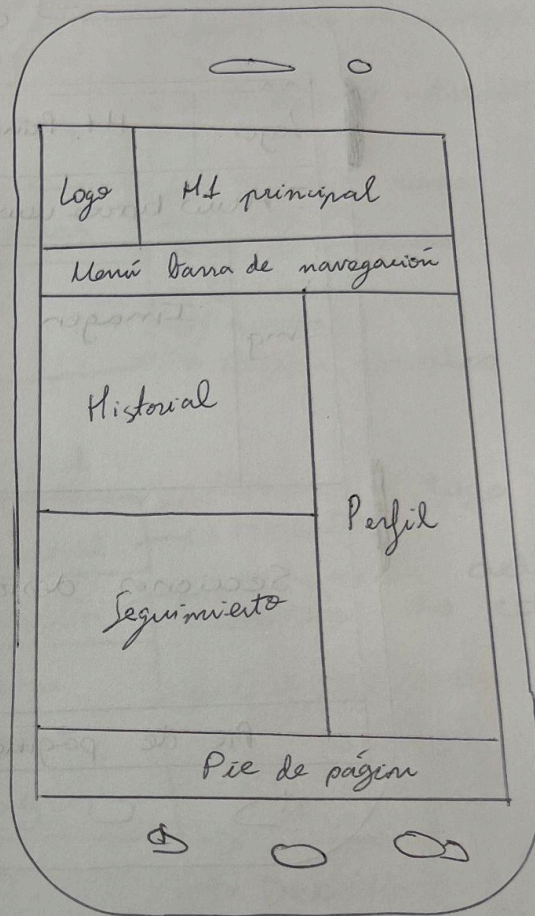 Logo
H1 principal
Menú barra de navegación
Historial
Perfil
Seguimiento
Pie de página